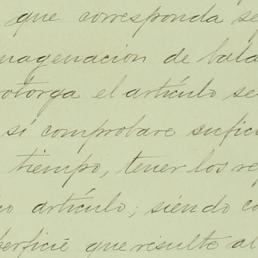 que corresponda se
nagenación de bala
otorga el artículo se
si comprobare sufic
tiempo, tener los re
co artículo; siendo co
perficie que resulte al